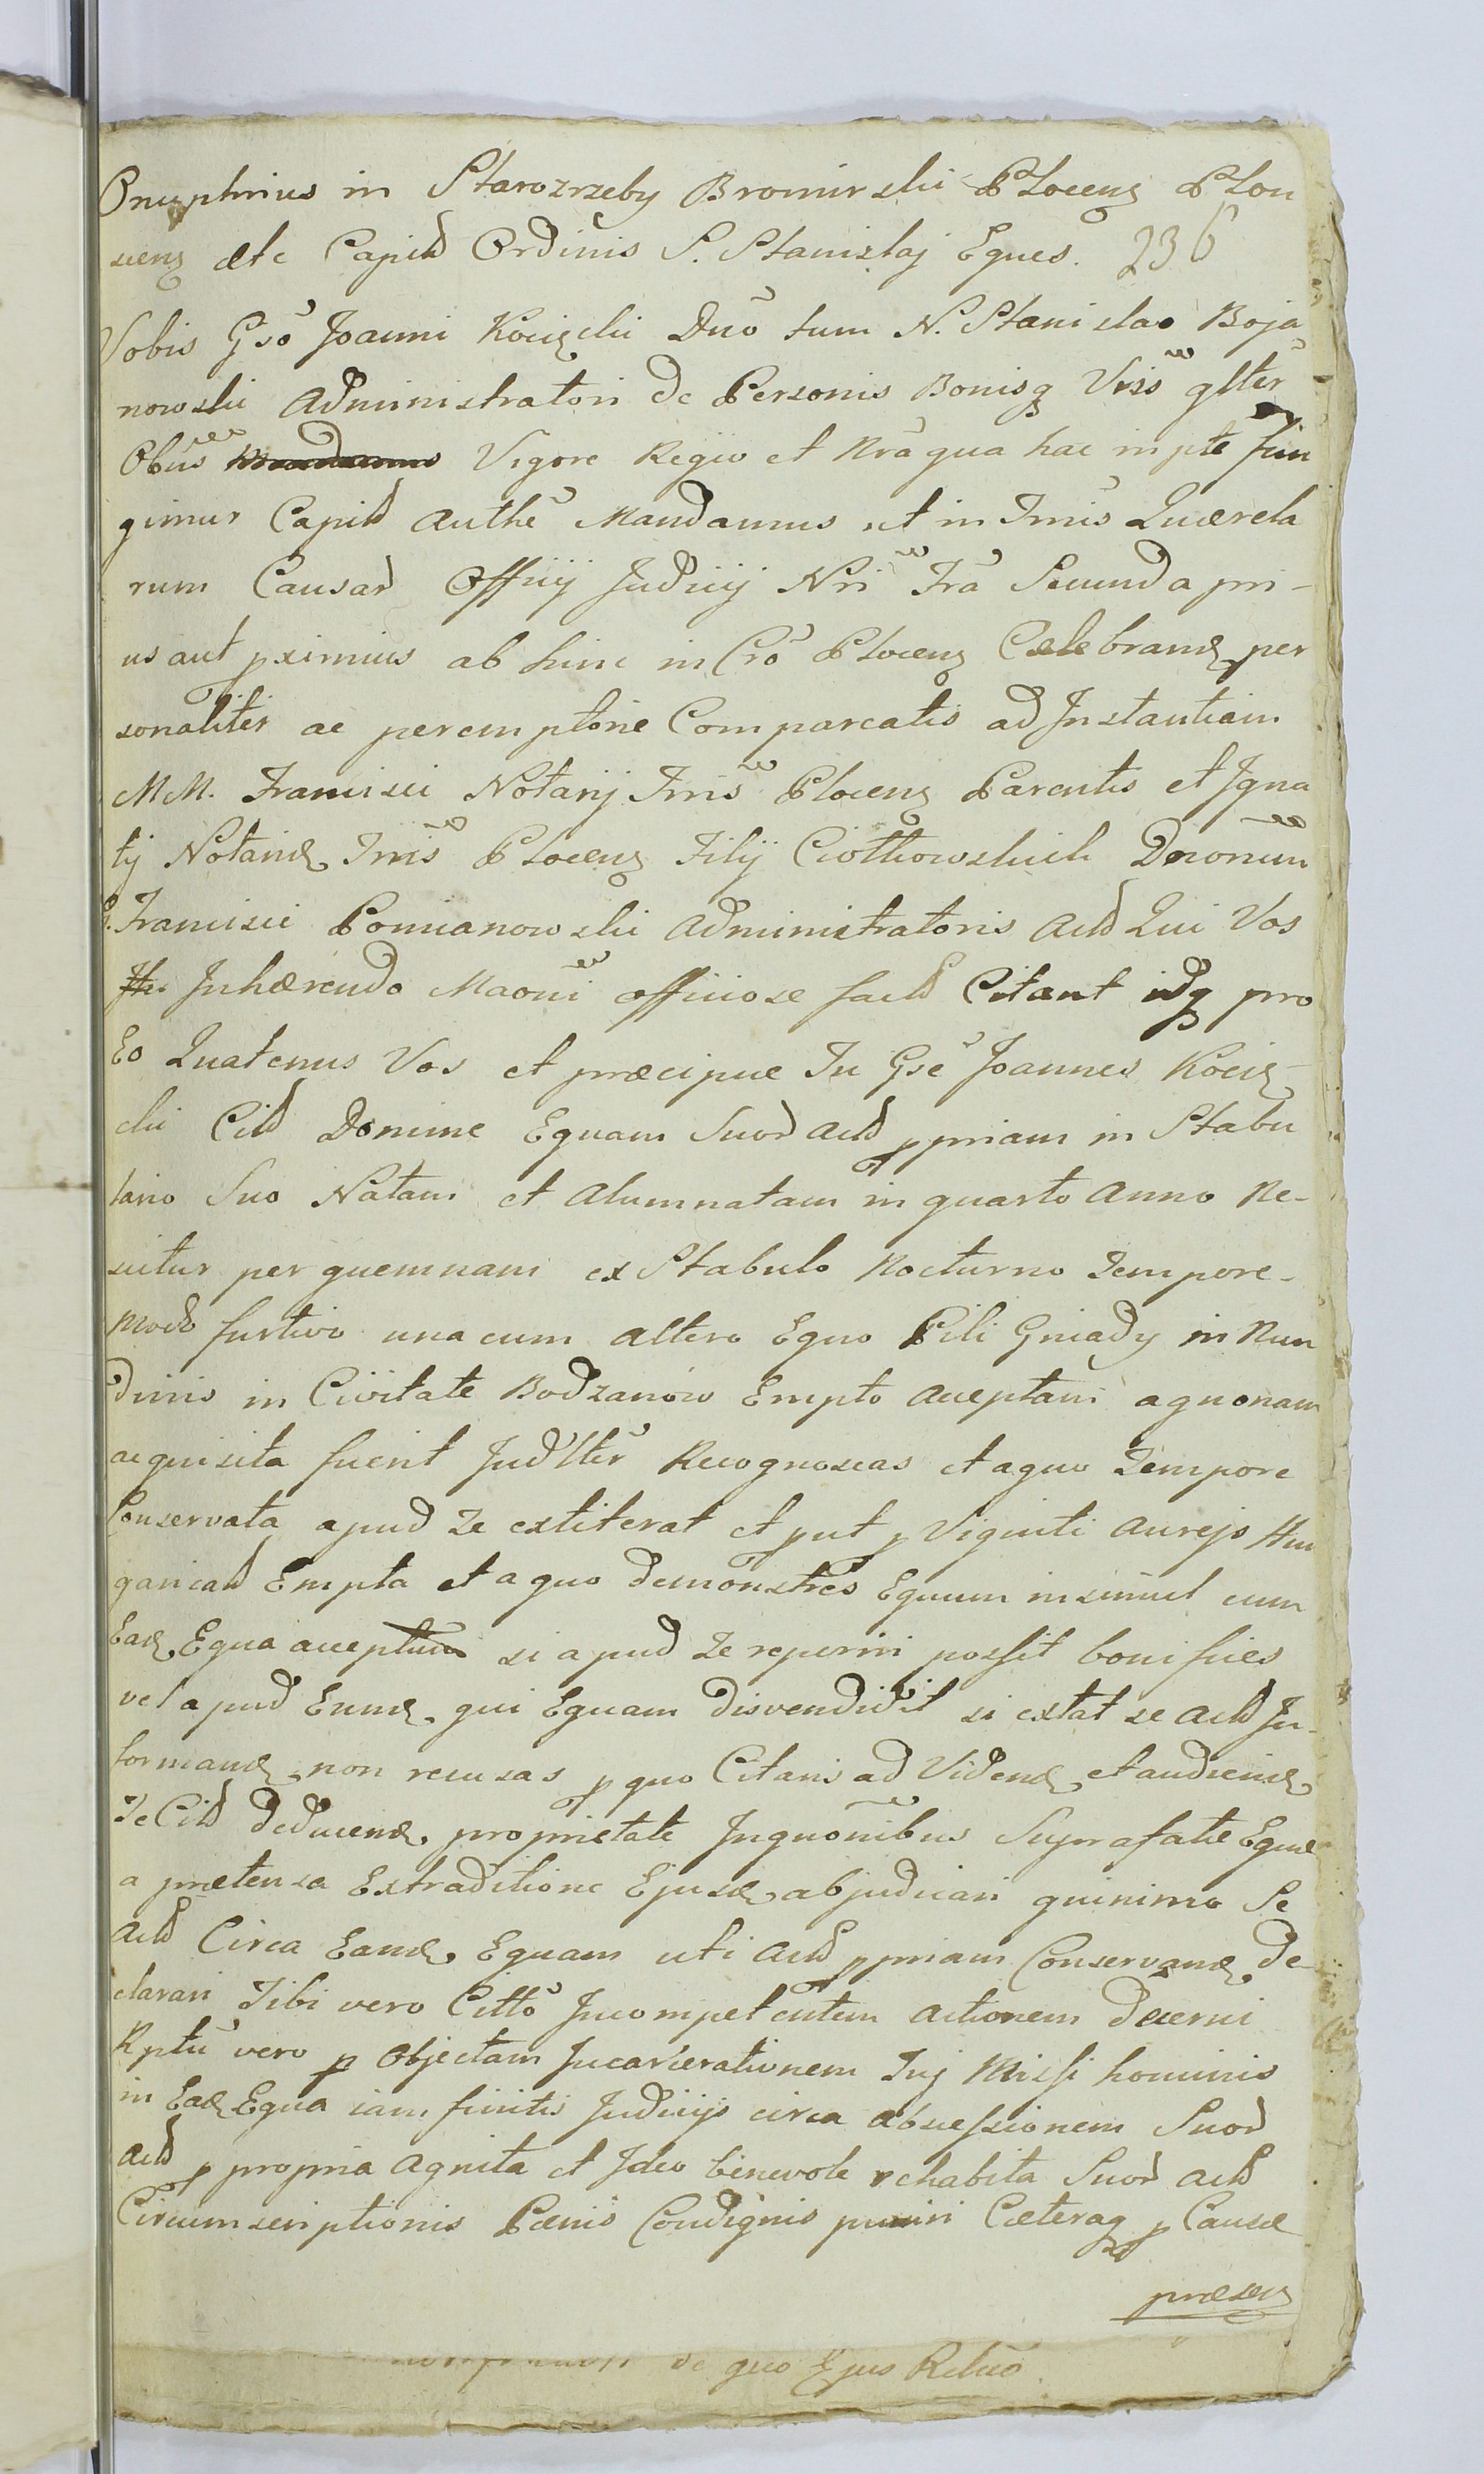 Onuphrius in Starozrzeby Bromirski Plocens Plon
scens etc Capits Ordinis S. Stanislaj Eques. 236
Vobis Gso Joanni Kocięcki Dno tum N. Stanislao Boja
nowski Administratori de Personis Bonisq Vris glter
Obus Mandamus Vigore Regio et Nra qua hac in pte fun
gimur Capit Authe Mandamus ut in Trmis Quærela
rum Causar Officij Judicij Nri Tra Secunda pri-
us aut pximius ab hinc in Cro Plocens Celebrand per
sonaliter ac peremptorie Compareatis ad Instantiam
MM. Francisci Notarij Trris Plocens Parentis et Igna
tij Notarid Trris Plocens Filij Ciołkowskich Dnorum
G. Francisci Pomianowski Administratoris Act Qui Vos
Inhærendo Maoni officiose fact Citant idq pro
Eo Quatenus Vos et præcipue Tu Gse Joannes Kocię
cki Cit Domine Equam Suor Act ppriam in Stabu
lario Suo Natam et Alumnatam in quarto Anno Ne-
scitur per quemnam ex Stabulo Nocturno Tempore-
Modo furtivo una cum altero Equo Pili Gniady in Nun
dinis in Civitate Bodzanow Empto Acceptam a quonam
acquisita fuerit Judlter Recognoscas et a quo Tempore
Conservata apud Te extiterat et put p Viginti Aureis Hun
garicat Empta et a quo demonstres Equum insimul cum
Ead Equa acceptum si apud Te reperiri possit bonifices
vel apud Eund qui Equam disvendidit si extat se Act In-
formand non recusas p quo Citaris ad Videnda et audiend
Te Cit deducend proprietate Inquonibus Suprafatæ Equæ
a prætensa Extraditione Ejusd abjudicari quinimo Se
Act Circa Eand Equam uti Act ppriam Conservand De-
clarari Tibi vero Citto Incompetentem Actionem decerni
Rptu vero p Objectam Incarcerationem Tuj Missi hominis
in Ead Equa iam finitis Judicijs circa Abscessionem Suor
Act p propria Agnita et Ideo benevole rehabita Suor Act
Circumscriptionis Pœnis Condignis puniri Cæteraq p Causæ
præsens
de quo Ejus Relao